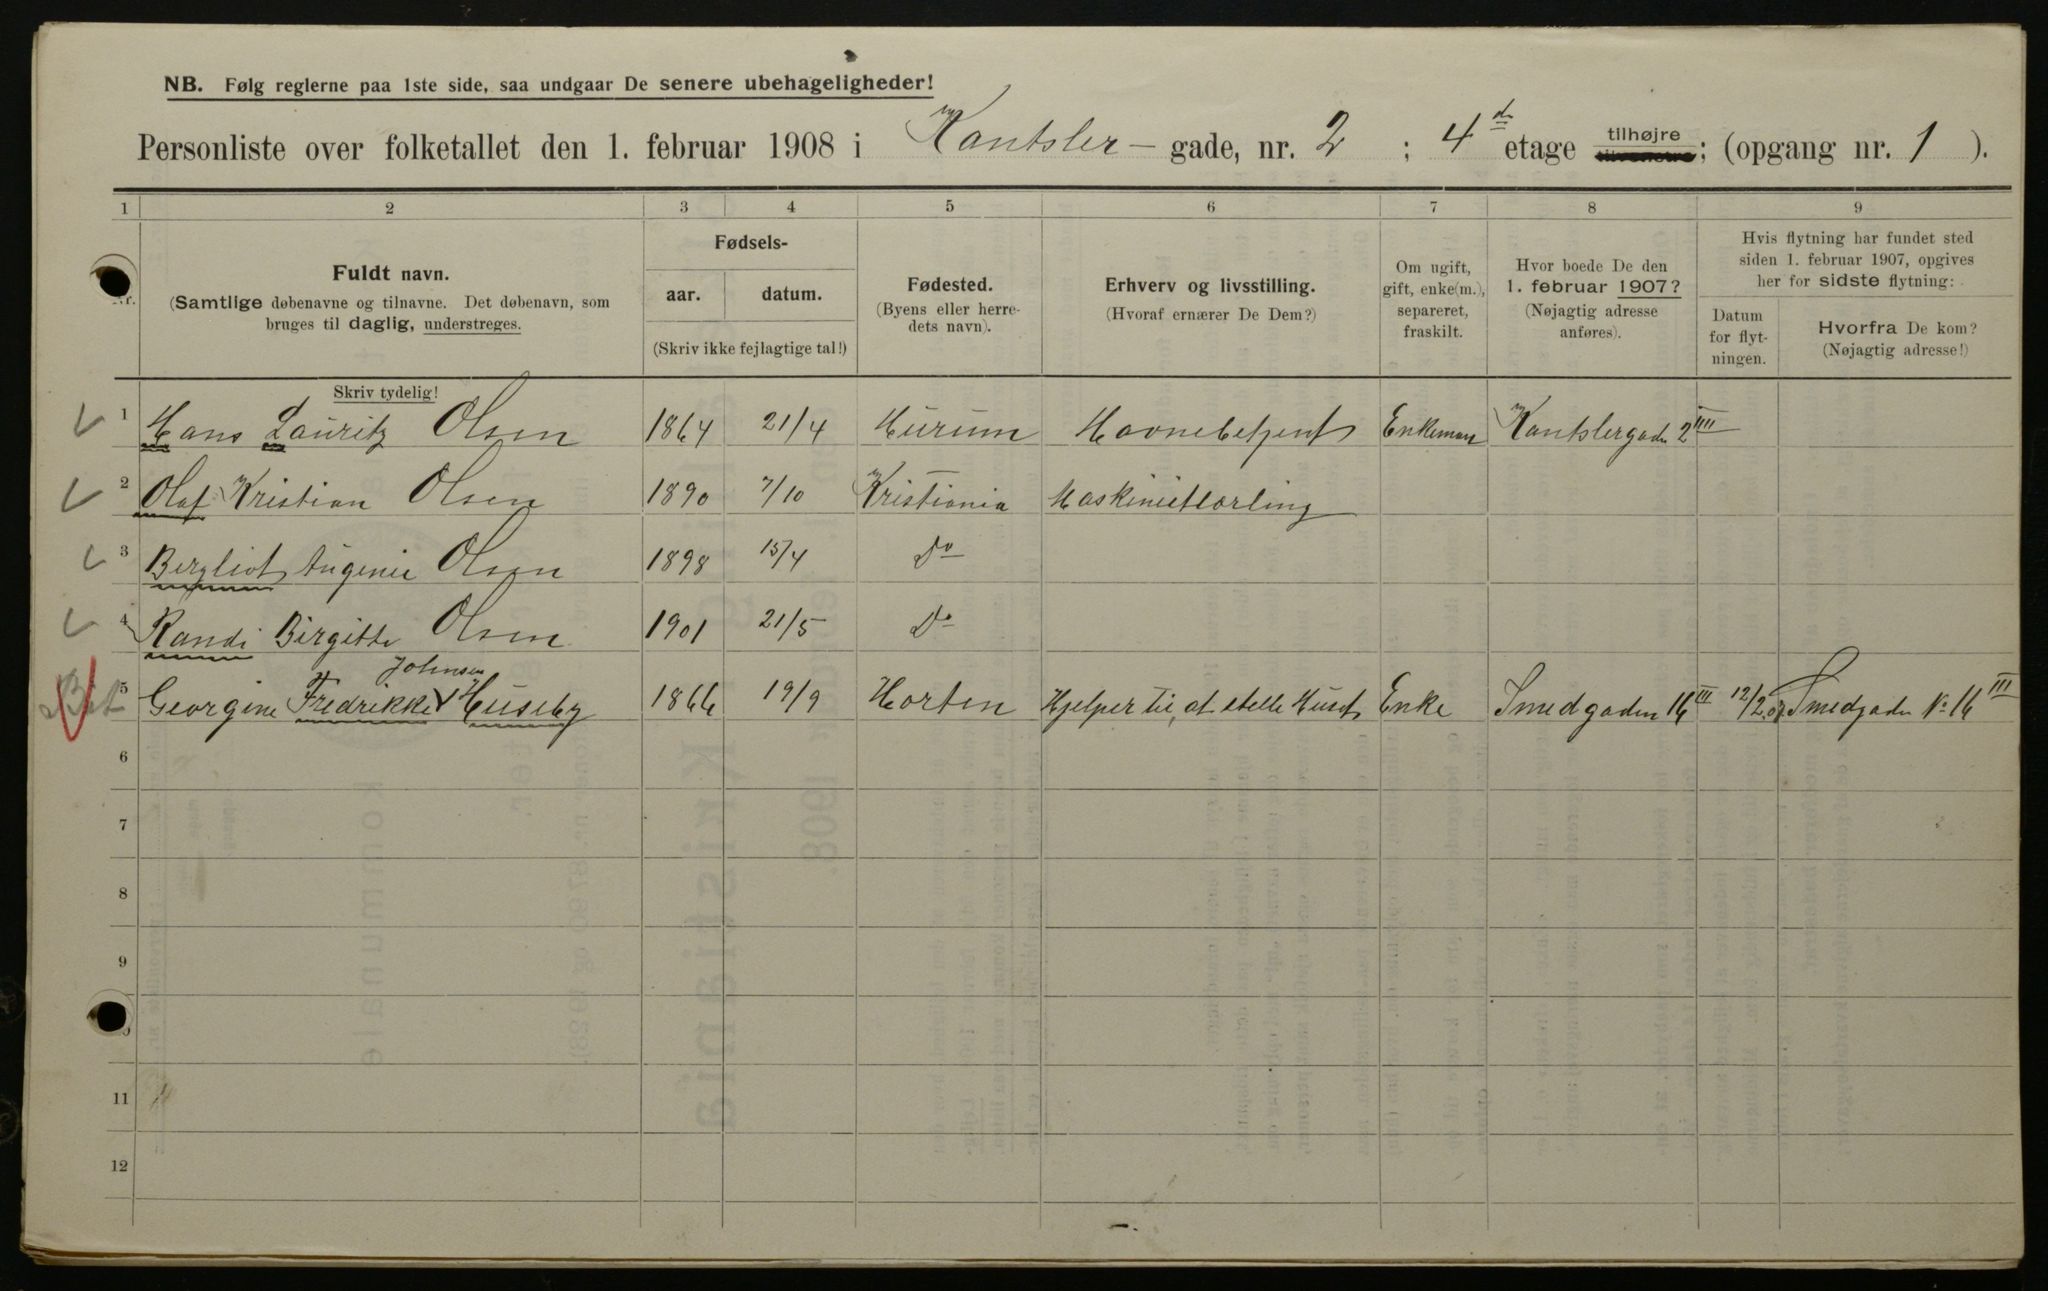 NB. Følg reglerne paa 1ste side, saa undgaar De senere ubehageligheder!
Personliste over folketallet den 1. februar 1908 i Kantsler- gade, nr. 2 ; 4de etage tilhøjre tilvenstre; (opgang nr. 1 ).
1 2 3 4 5 6 7 8 9
Nr.
Fuldt navn.
(Samtlige døbenavne og tilnavne. Det døbenavn, som
bruges til daglig, understreges.
Fødsels-
aar. datum.
(Skriv ikke fejlagtige tal!)
Fødested.
(Byens eller herre-
dets navn).
Erhverv og livsstilling.
(Hvoraf ernærer De Dem?)
Om ugift,
gift, enke(m.),
separeret,
fraskilt.
Hvor boede De den
1. februar 1907?
(Nøjagtig adresse
anføres).
Hvis flytning har fundet sted
siden 1. februar 1907, opgives
her for sidste flytning:
Datum
for flyt-
ningen.
Hvorfra De kom?
(Nøjagtig adresse!)
Skriv tydelig!
1 Hans Lauritz Olsen 1864 21/4 Hurum Havnebetjent Enkeman Kantslergade 2 IIII
2 Olaf Kristian Olsen 1890 7/10 Kristiania Maskinistlærling
3 Bergliot Augenie Olsen 1898 15/4 Do
4 Randi Birgitte Olsen 1901 21/5 Do
Johnsen
5 Georgine Fredrikke Huseby 1866 19/9 Horten Hjelper til at stelle Huset Enke Smedgaden 16 III 12/2 07 Smedgaden No 16 III
6
7
8
9
11
12